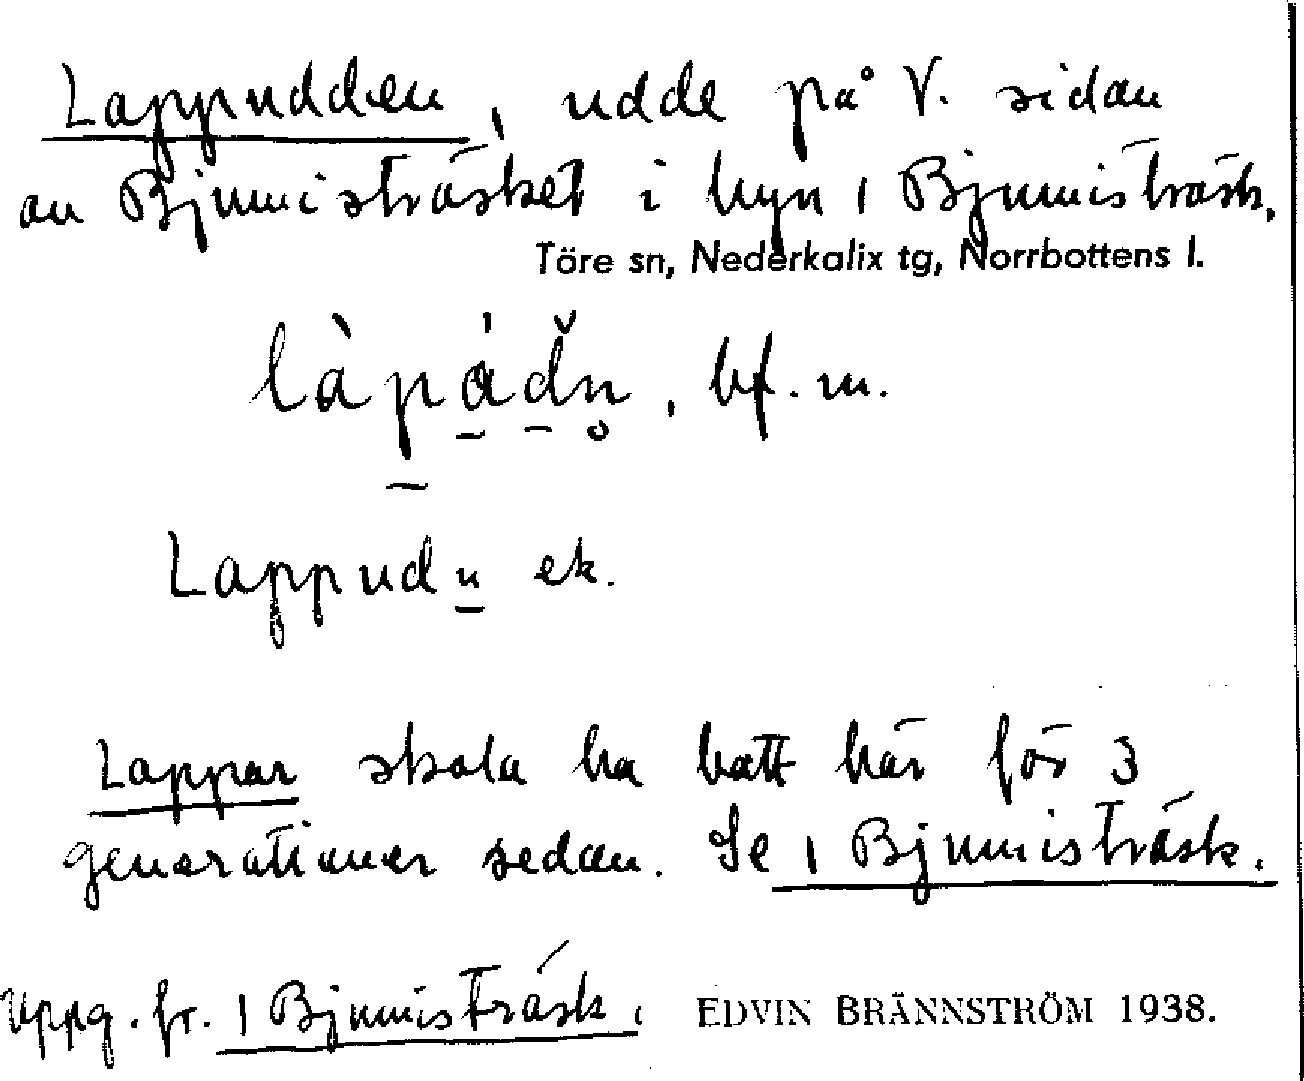 Lappudden, udde på V. sidan
av Bjumisträsket i byn 1 Bjumisträsk.
Töre sn, Nederkalix tg, Norrbottens l.
bf. m.
Lappudn ek.
Lappar skola ha bott här för 3
generationer sedan. Se 1 Bjumisträsk.
Uppg. fr. 1 Bjumisträsk.
EDVIN BRÄNNSTRÖM 1938.